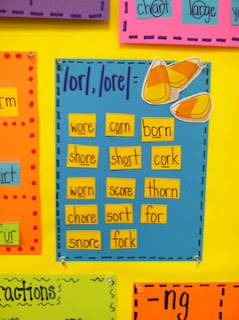 chant large
/or/, /ore/=
wore corn born
shore short cork
worn score thorn
chore sort for
snore fork
-ng